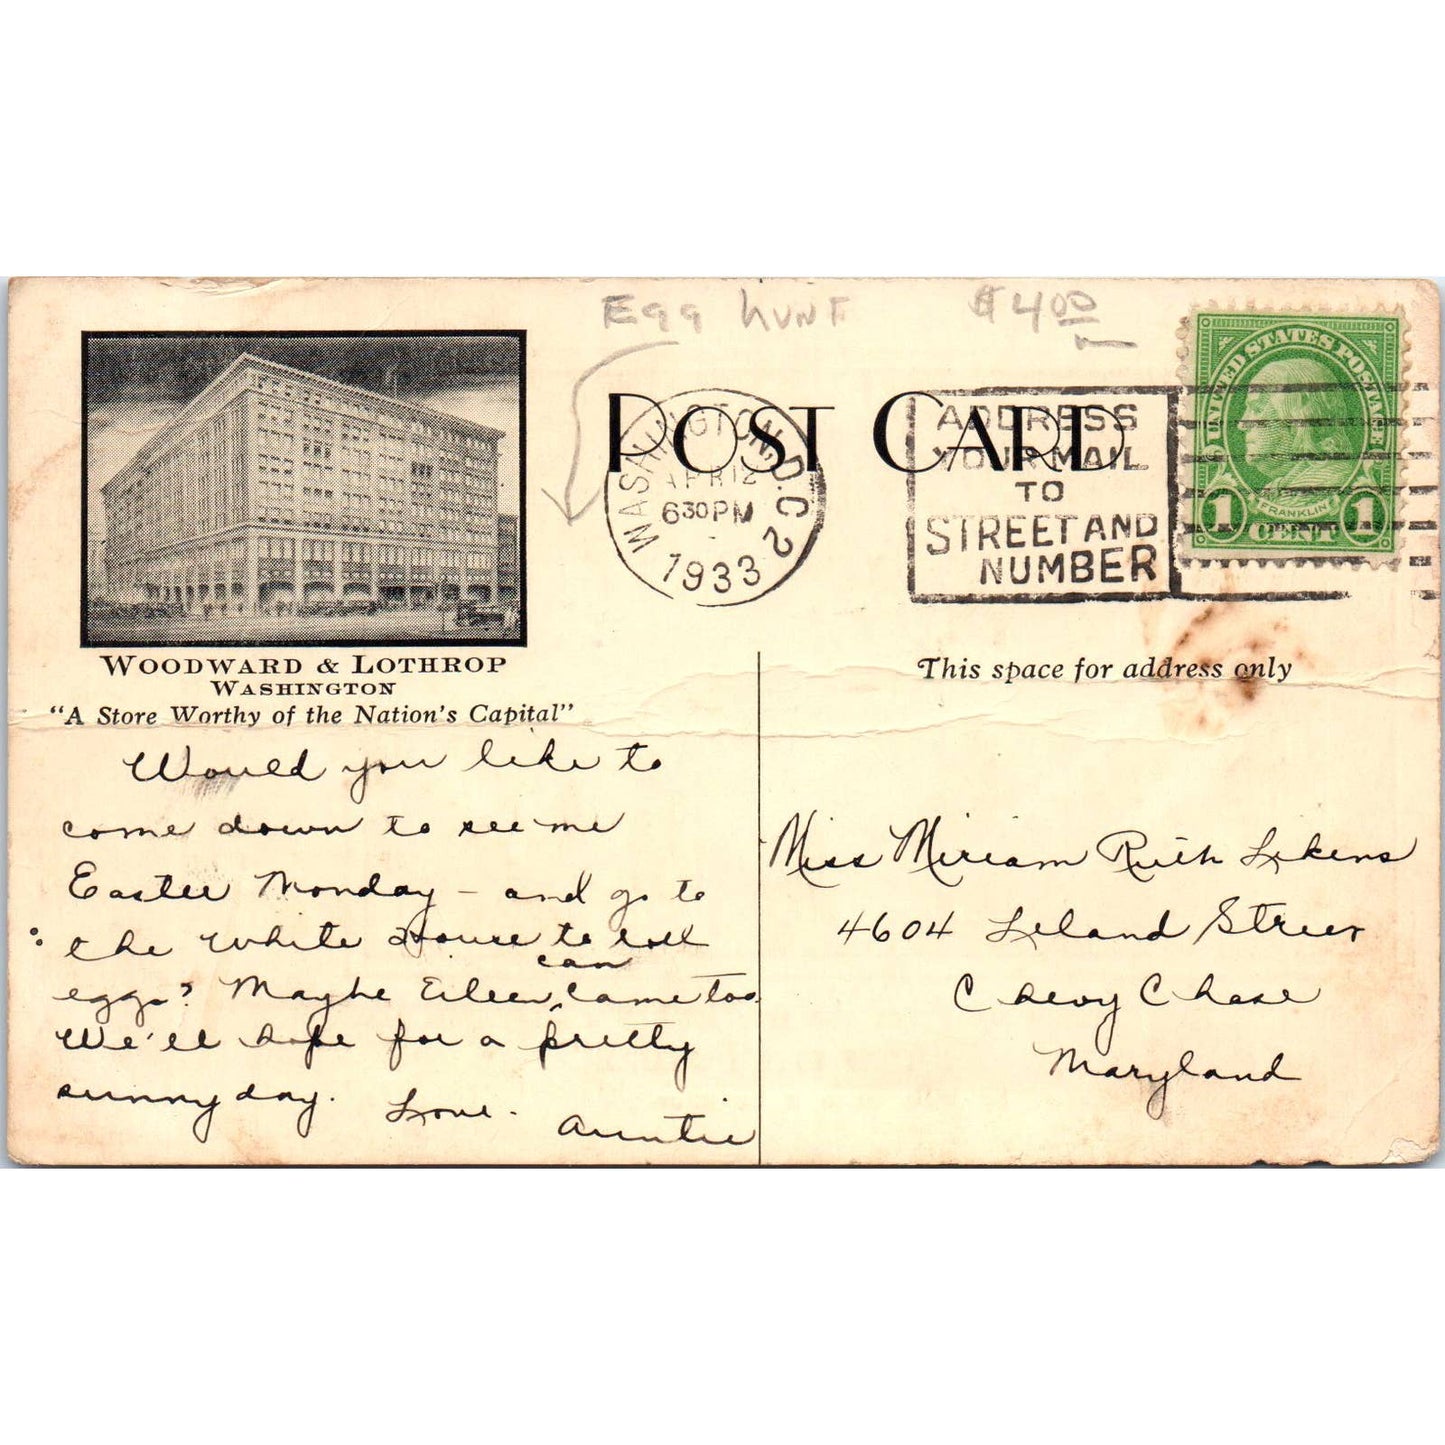 Egg hunt $4.00
POST CARD
WASHINGTON, D.C. 2
APR 12
6 30 PM
1933
ADDRESS
YOUR MAIL
TO
STREET AND
NUMBER
UNITED STATES POSTAGE
FRANKLIN
1 CENT 1
WOODWARD & LOTHROP
WASHINGTON
"A Store Worthy of the Nation's Capital"
Would you like to
come down to see me
Easter Monday – and go to
the White House to roll
eggs? Maybe Eileen can come too.
We'll hope for a pretty
sunny day. Love.
Auntie
This space for address only
Miss Miriam Ruth Likens
4604 Leland Street
Chevy Chase
Maryland